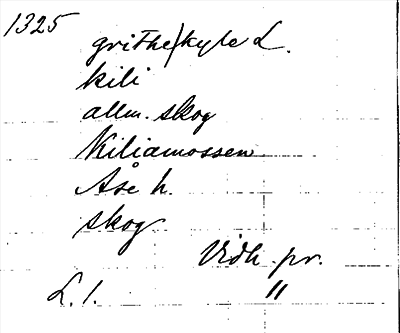 1325
grithe)kyle L.
kili
allm. skog
Kiliamossen
Åse h.
skog
Vidh. pr.
L. 1. "